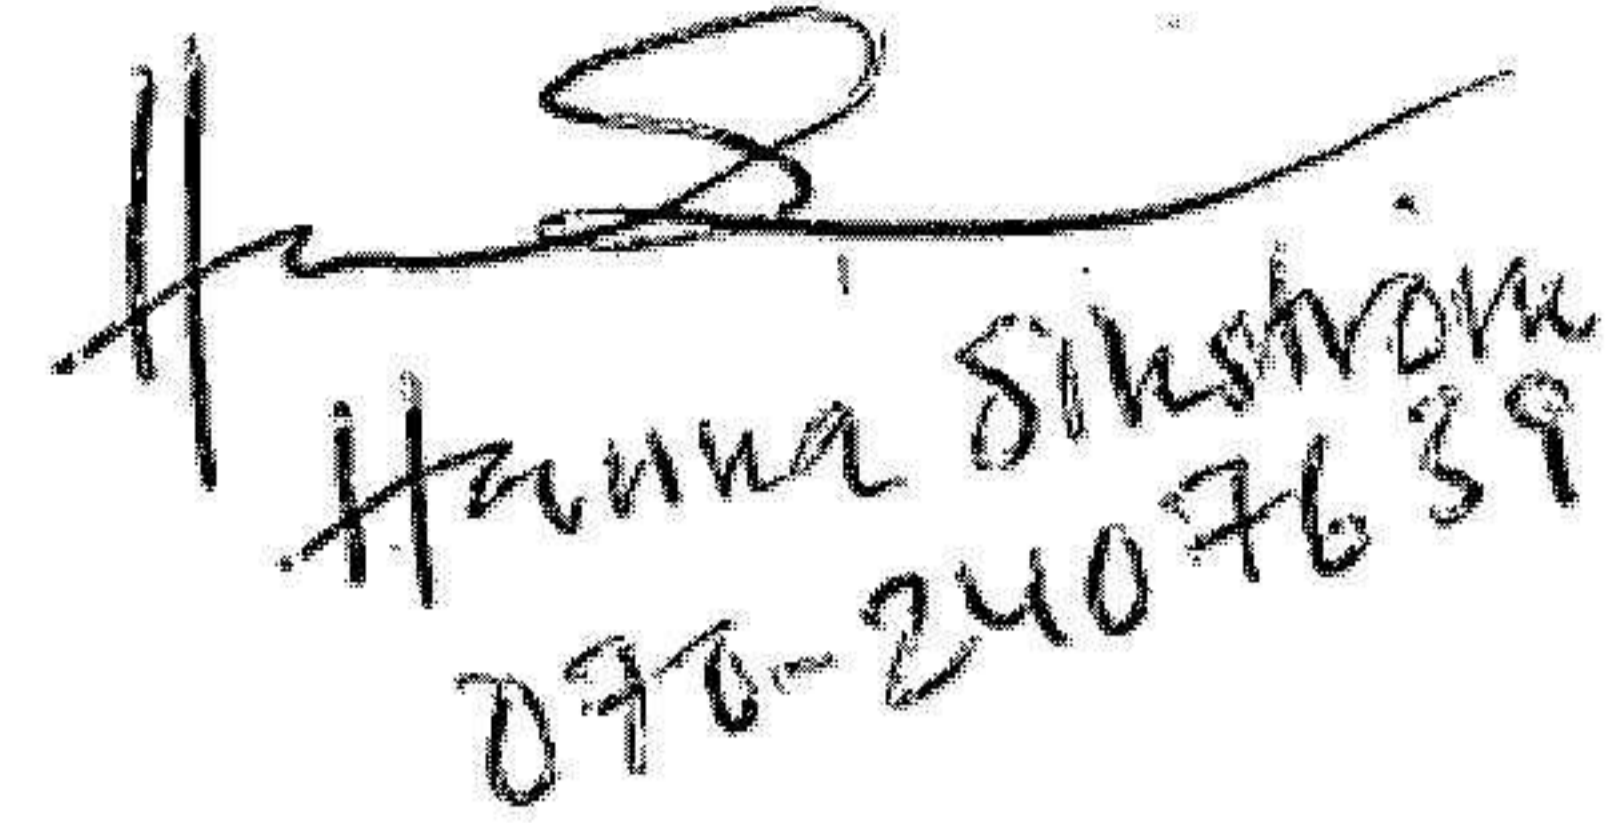 Hanna Sikström
070-2407639